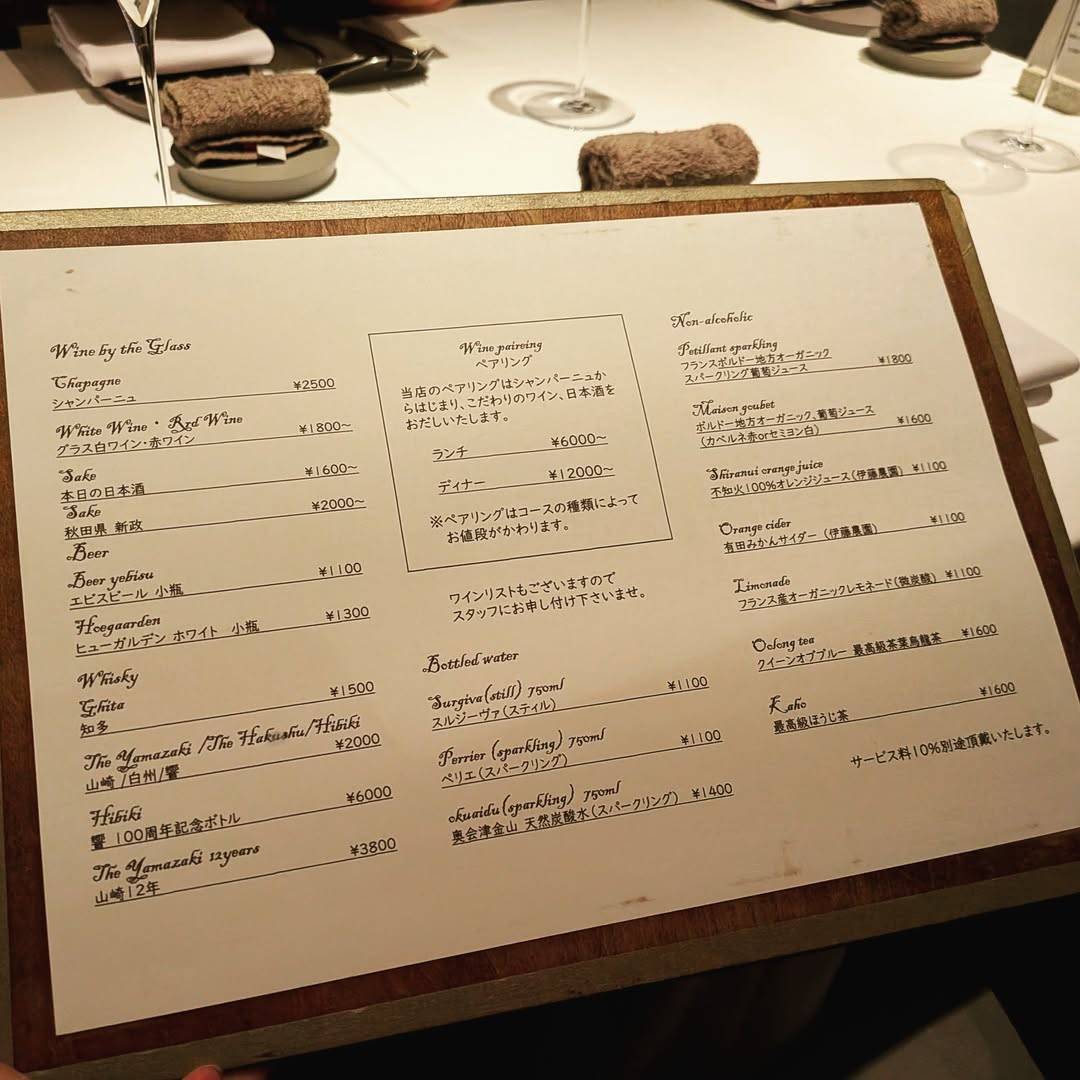 Wine by the Glass
Chapagne
シャンパーニュ ¥2500
White Wine・Red Wine
グラス白ワイン・赤ワイン ¥1800~
Sake
本日の日本酒 ¥1600~
Sake
秋田県 新政 ¥2000~
Beer
Beer yebisu
エビスビール 小瓶 ¥1100
Hoegaarden
ヒューガルデン ホワイト 小瓶 ¥1300
Whisky
Ghita
知多 ¥1500
The Yamazaki /The Hakushu/Hibiki
山崎 /白州/響 ¥2000
Hibiki
響 100周年記念ボトル ¥6000
The Yamazaki 12years
山崎12年 ¥3800
Wine paireing
ペアリング
当店のペアリングはシャンパーニュか
らはじまり、こだわりのワイン、日本酒を
おだしいたします。
ランチ ¥6000~
ディナー ¥12000~
※ペアリングはコースの種類によって
お値段がかわります。
ワインリストもございますので
スタッフにお申し付け下さいませ。
Bottled water
Surgiva(still) 750ml
スルジーヴァ(スティル) ¥1100
Perrier (sparkling) 750ml
ペリエ(スパークリング) ¥1100
okuaidu(sparkling) 750ml
奥会津金山 天然炭酸水(スパークリング) ¥1400
Non-alcoholic
Petillant sparkling
フランスボルドー地方オーガニック
スパークリング葡萄ジュース ¥1800
Maison goubet
ボルドー地方オーガニック、葡萄ジュース
(カベルネ赤orセミヨン白) ¥1600
Shiranui orange juice
不知火100%オレンジジュース(伊藤農園) ¥1100
Orange cider
有田みかんサイダー (伊藤農園) ¥1100
Limonade
フランス産オーガニックレモネード(微炭酸) ¥1100
Oolong tea
クイーンオブブルー 最高級茶葉烏龍茶 ¥1600
Kaho
最高級ほうじ茶 ¥1600
サービス料10%別途頂戴いたします。